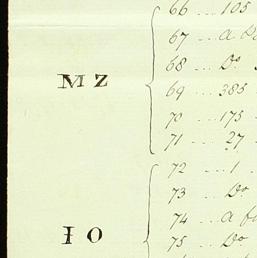 66 ... 105
67 ... a
68 ... Do
M Z
69 ... 385
70 ... 175
71 ... 27
72 ... 1
73 ... Do
74 ... a
I O
75 ... Do